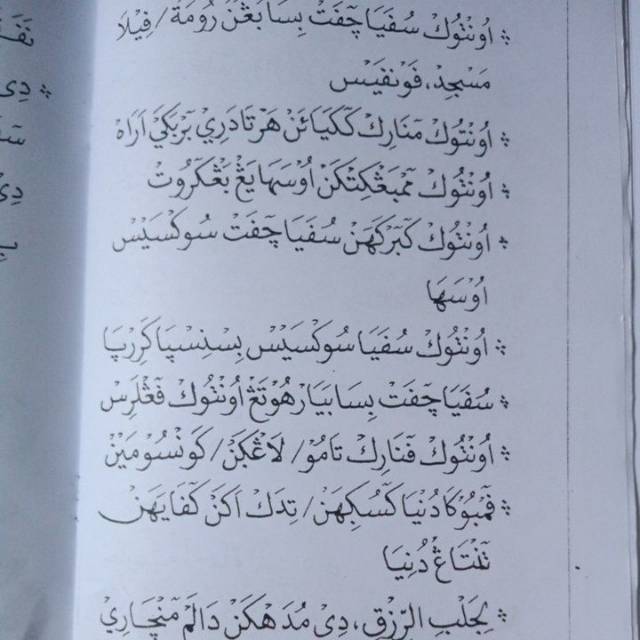 ؞ اُونْتُوكْ سُفَيَا چَفَتْ بِسَا بَڠُنْ رُومَهْ / فِيْلَا
مَسْجِدْ، فَوْنْفَيْسْ
؞ اُونْتُوكْ مَنَارِكْ كَكَيَائَنْ هَرْتَا دَرِيْ بَرْبَكَيْ اَرَاهْ
؞ اُونْتُوكْ مَمْبَڠْكِتْكَنْ اُوْسَهَا يَڠْ بَڠْكَرُوتْ
؞ اُونْتُوكْ كَبَرْكَهَنْ سُفَيَا چَفَتْ سُوكْسَيْسْ
اُوْسَهَا
؞ اُونْتُوكْ سُفَيَا سُوكْسَيْسْ بِسْنِسْپَا كَرْرِپَا
؞ سُفَيَا چَفَتْ بِسَا بَيَارْ هُوتَڠْ اُونْتُوكْ فَڠْلَرِسْ
؞ اُونْتُوكْ فَنَارِكْ تَامُوْ / لَاڠْكَنْ / كَونْسُوْمَيْنْ
؞ فَمْبُوكَا دُنْيَا كَسُكِهَنْ / تِدَكْ اَكَنْ كَفَايَهَنْ
تَنْتَاڠْ دُنِيَا
؞ لِجَلْبِ الرِّزْقِ، دِيْ مُدَهْكَنْ دَالَمْ مَنْچَارِيْ